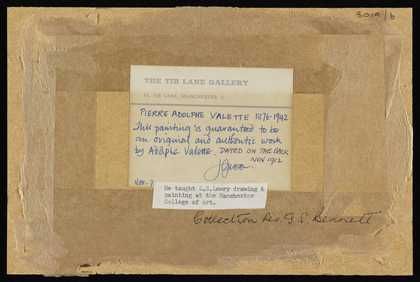 3019/6
THE TIB LANE GALLERY
14 TIB LANE, MANCHESTER 2
PIERRE ADOLPHE VALETTE 1876-1942
This painting is guaranteed to be
an original and authentic work
by Adolphe Valette. DATED ON THE BACK
NOV 1912
He taught L.S.Lowry drawing &
painting at the Manchester
College of Art.
Collection
Bennett